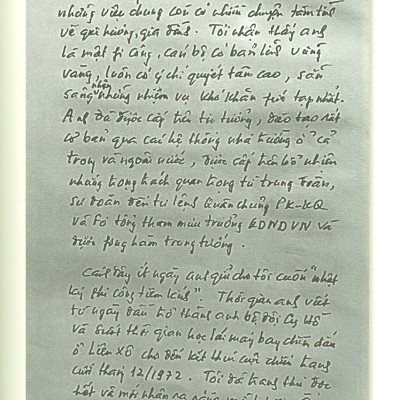 những vấn chung còn có nhiều chuyện tâm tình
về quê hương, gia đình. Tôi nhận thấy anh
là một phi công, cán bộ có bản lĩnh vững
vàng, luôn có ý chí quyết tâm cao, sẵn
sàng nhận những nhiệm vụ khó khăn phức tạp nhất.
Anh đã được cấp trên tin tưởng, đào tạo rất
cơ bản qua các hệ thống nhà trường ở cả
trong và ngoài nước, được cấp trên bổ nhiệm
những trọng trách quan trọng từ trung đoàn,
sư đoàn đến tư lệnh Quân chủng PK-KQ
và Phó tổng tham mưu trưởng QDNDVN và
được phong hàm trung tướng.
Cách đây ít ngày anh gửi cho tôi cuốn "nhật
ký phi công tiêm kích". Thời gian anh viết
từ ngày đầu trở thành anh bộ đội Cụ Hồ
và suốt thời gian học lái máy bay chiến đấu
ở Liên Xô cho đến kết thúc cuộc chiến tranh
cuối tháng 12/1972. Tôi đã tranh thủ đọc
hết và mới nhận ra rằng